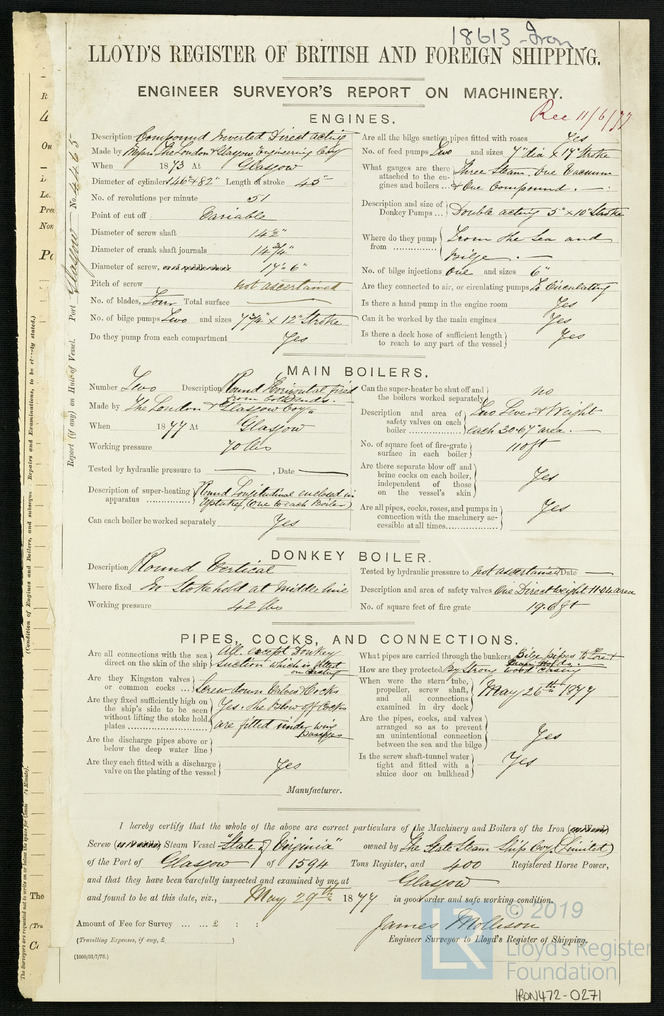 18613 - Iron
LLOYD'S REGISTER OF BRITISH AND FOREIGN SHIPPING.
ENGINEER SURVEYOR'S REPORT ON MACHINERY.
Rec 11/6/77
No. 4465
Port Glasgow
Report (if any) on Hull of Vessel.
ENGINES.
Description Compound Inverted Direct acting
Made by Messrs The London & Glasgow Engineering Coy
When 1873 At Glasgow
Diameter of cylinders 46" & 82" Length of stroke 45"
No. of revolutions per minute 51
Point of cut off Variable
Diameter of screw shaft 14½"
Diameter of crank shaft journals 14¾"
Diameter of screw, 17" 6"
Pitch of screw not ascertained
No. of blades, Four Total surface
No. of bilge pumps Two and sizes × 12" Stroke
Do they pump from each compartment Yes
Are all the bilge suction pipes fitted with roses Yes
No. of feed pumps Two and sizes dia × Stroke
What gauges are there attached to the engines and boilers ... Three Steam, One Vacuum & One Compound.
Description and size of Donkey Pumps ... Double acting 5" × 10" Stroke
Where do they pump from From the Sea and Bilge.
No. of bilge injections One and sizes 6"
Are they connected to air, or circulating pumps To Circulating
Is there a hand pump in the engine room Yes
Can it be worked by the main engines Yes
Is there a deck hose of sufficient length to reach to any part of the vessel Yes
MAIN BOILERS.
Number Two Description Round Horizontal fired from both ends.
Made by The London & Glasgow Coy.
When 1877 At Glasgow
Working pressure 70 lbs
Tested by hydraulic pressure to , Date
Description of super-heating apparatus Round Longitudinal in Uptakes (One to each Boiler)
Can each boiler be worked separately Yes
Can the super-heater be shut off and the boilers worked separately no
Description and area of safety valves on each boiler Two Lever & Weight each area
No. of square feet of fire-grate surface in each boiler 110 ft
Are there separate blow off and brine cocks on each boiler, independent of those on the vessel's skin Yes
Are all pipes, cocks, roses, and pumps in connection with the machinery accessible at all times Yes
DONKEY BOILER.
Description Round Vertical
Where fixed In Stokehold at Middle line
Working pressure 42 lbs
Tested by hydraulic pressure to not ascertained Date
Description and area of safety valves One Direct weight area
No. of square feet of fire grate
PIPES, COCKS, AND CONNECTIONS.
Are all connections with the sea direct on the skin of the ship All except Donkey suction which is fitted on
Are they Kingston valves or common cocks Screw down Valves & Cocks
Are they fixed sufficiently high on the ship's side to be seen without lifting the stoke hold plates Yes. The Blow off Cocks are fitted under wing
Are the discharge pipes above or below the deep water line
Are they each fitted with a discharge valve on the plating of the vessel Yes
What pipes are carried through the bunkers Bilge pipes to Fore
How are they protected By Strong Wood Casing
When were the stern tube, propeller, screw shaft, and all connections examined in dry dock May 26th 1877
Are the pipes, cocks, and valves arranged so as to prevent an unintentional connection between the sea and the bilge Yes
Is the screw shaft-tunnel water tight and fitted with a sluice door on bulkhead Yes
Manufacturer.
I hereby certify that the whole of the above are correct particulars of the Machinery and Boilers of the Iron
Screw Steam Vessel "State of Virginia" owned by The State Steam Ship Coy. (Limited)
of the Port of Glasgow of 1594 Tons Register, and 400 Registered Horse Power,
and that they have been carefully inspected and examined by me at Glasgow
and found to be at this date, viz., May 29th 1877 in good order and safe working condition.
Amount of Fee for Survey ... ... £ : :
(Travelling Expenses, if any, £ )
James Mollison
Engineer Surveyor to Lloyd's Register of Shipping.
© 2019
LR
Lloyd's Register
Foundation
IRON472-0271